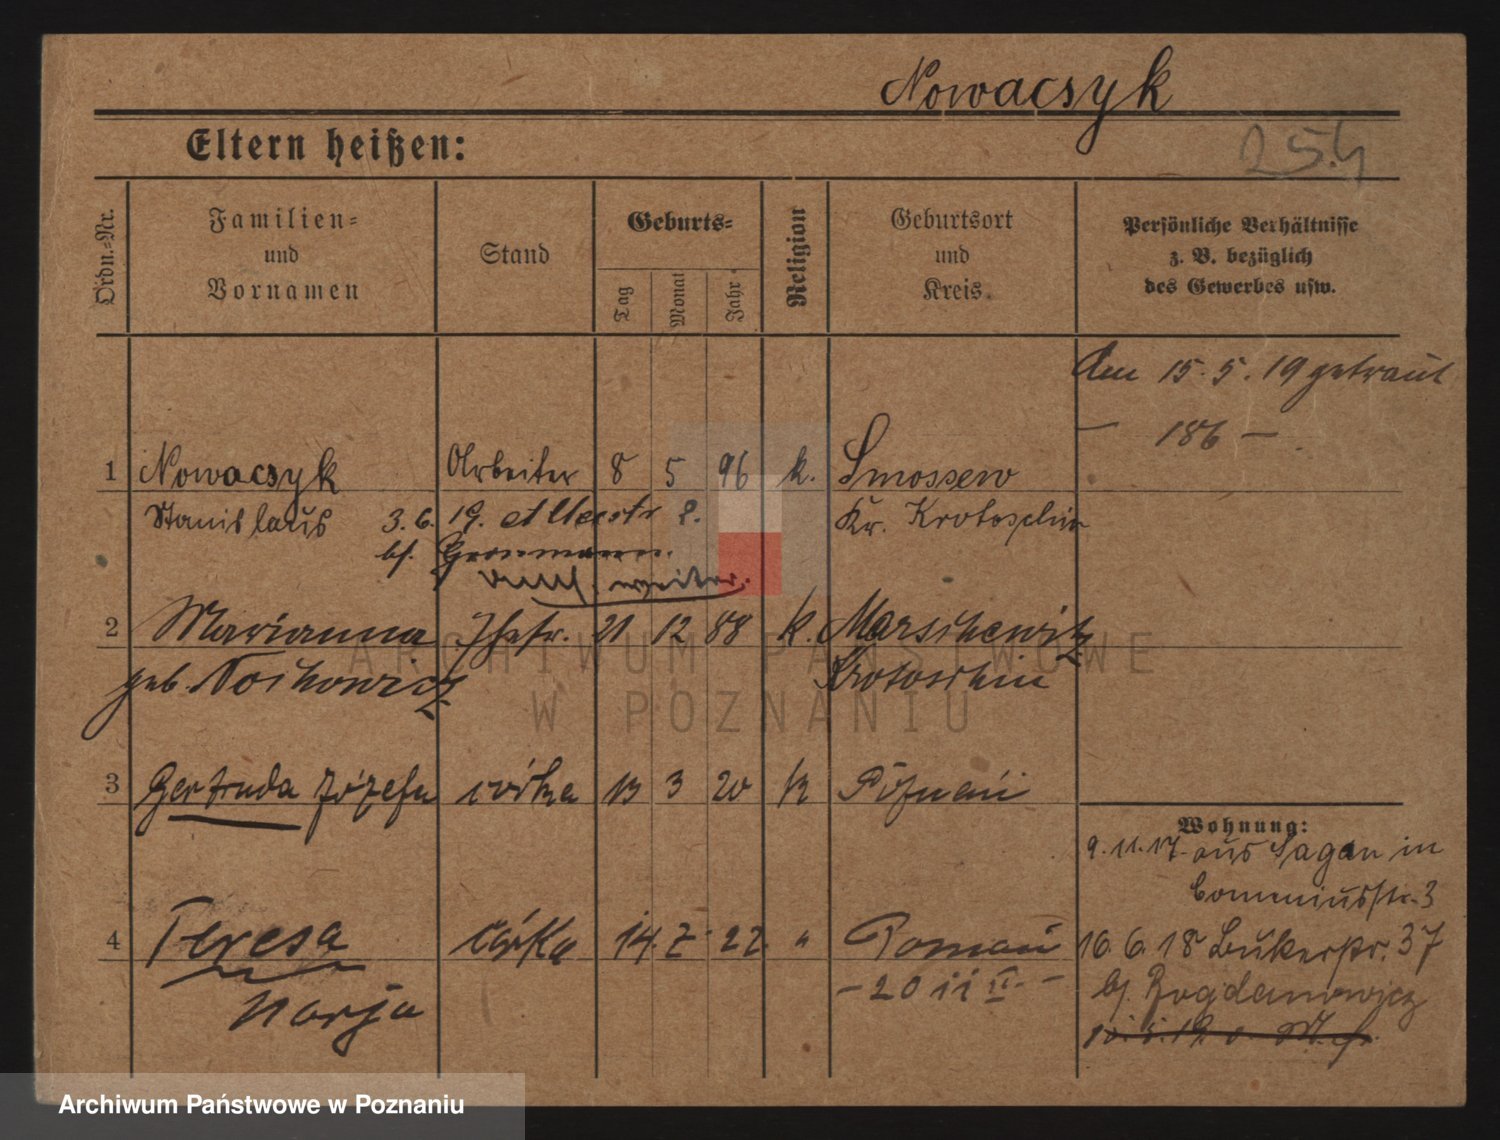 Nowacsyk
Eltern heißen:
254
Ordn.=Nr.
Familien=
und
Vornamen
Stand
Geburts=
Tag
Monat
Jahr
Religion
Geburtsort
und
Kreis.
Persönliche Verhältnisse
z. B. bezüglich
des Gewerbes usw.
Am 15.5.19 getraut
— 186 —
1 Nowacsyk Arbeiter 8 5 96 k. Smossew
Stanislaus 3.6.19. 2. Kr. Krotoschin
bf. Gronmann.
weiter.
2 Marianna Ehefr. 21 12 88 k. Marschewitz
geb. Nochowicz Krotoschin
3 Gertruda Józefa córka 13 3 20 k Poznań
Wohnung:
9.11.17. aus Sagan in
Comeniusstr. 3
4 Teresa córka 14. 7. 22 " Poznań
16.6.18 Bukerstr. 37
Marja
— 20 ii II. —
bf. Bogdanowicz
ARCHIWUM PAŃSTWOWE
W POZNANIU
Archiwum Państwowe w Poznaniu